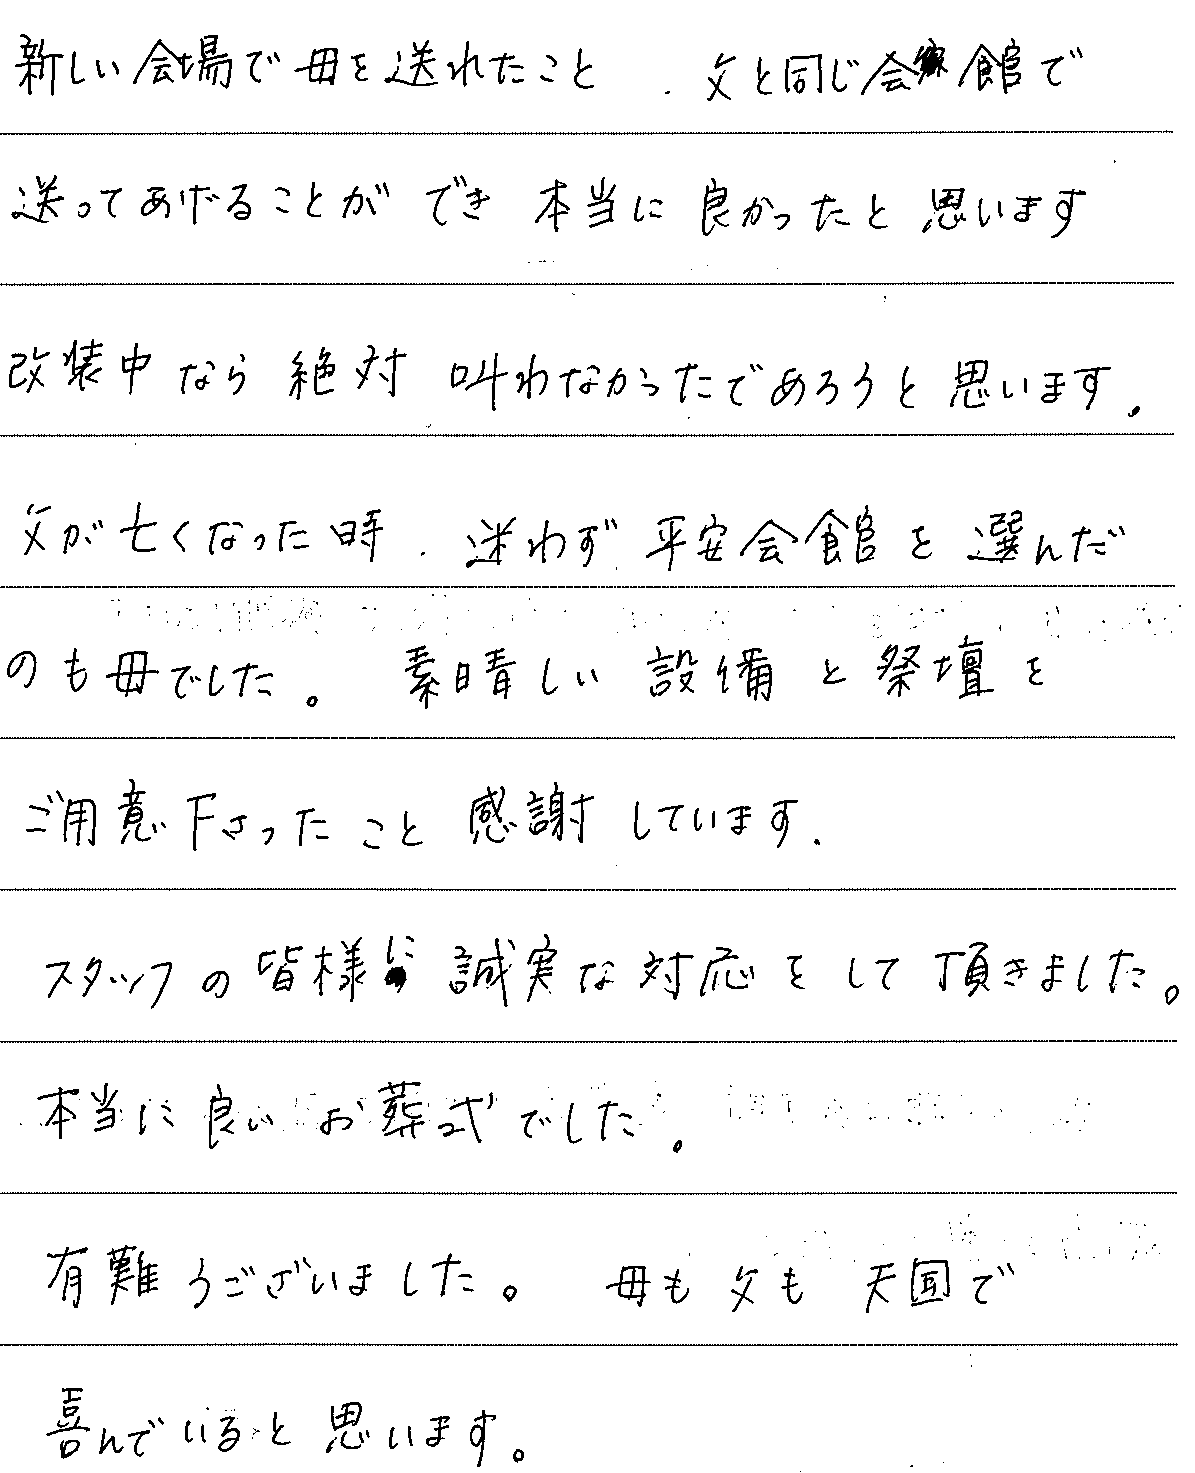 新しい会場で母を送れたこと、父と同じ会館で
送ってあげることができ 本当に良かったと思います
改装中なら絶対 叶わなかったであろうと思います。
父が亡くなった時、迷わず平安会館を選んだ
のも母でした。 素晴しい設備と祭壇を
ご用意下さったこと感謝しています。
スタッフの皆様に誠実な対応をして頂きました。
本当に良いお葬式でした。
有難うございました。 母も父も天国で
喜んでいると思います。